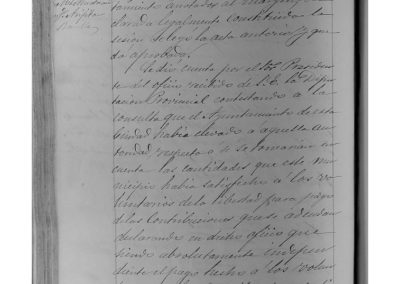 tamiento anotados al margen
Para legalmente constituida la
sesion se leyo la acta anterior y que
dó aprobada.
Se dió cuenta por el Sor. Presiden
te del oficio recibido de S.E. la Dipu
tacion Provincial contestando a la
consulta que el Ayuntamiento de esta
Ciudad habia elevado a aquella au
toridad, respecto a si se tomarian en
cuenta las cantidades que este mu
nicipio habia satisfecho á los Vo
luntarios de la libertad para pago
de las Contribuciones que se adeudan
declarando en dicho oficio que
siendo absolutamente indepen
diente el pago hecho a los Volun